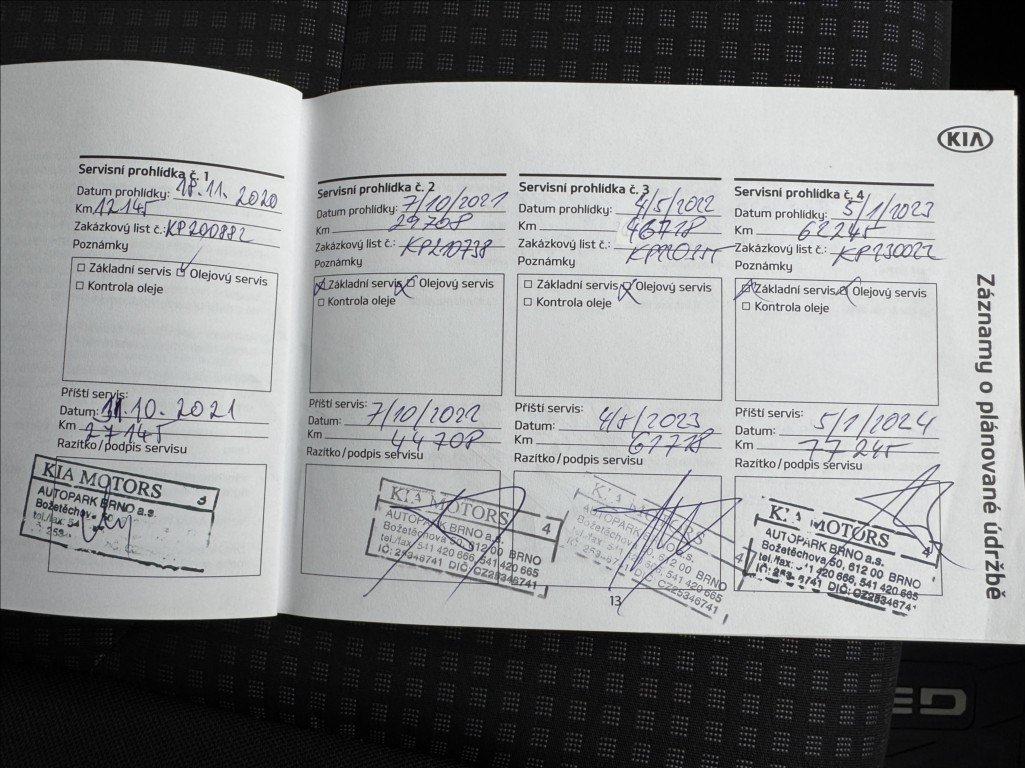 KIA
Záznamy o plánované údržbě
Servisní prohlídka č. 1
Datum prohlídky: 18.11.2020
Km 12145
Zakázkový list č.: KP200882
Poznámky
Základní servis Olejový servis
Kontrola oleje
Příští servis:
Datum: 11.10.2021
Km 27145
Razítko/podpis servisu
KIA MOTORS 3
AUTOPARK BRNO a.s.
Servisní prohlídka č. 2
Datum prohlídky: 7/10/2021
Km 29708
Zakázkový list č.: KP210738
Poznámky
Základní servis Olejový servis
Kontrola oleje
Příští servis:
Datum: 7/10/2022
Km 44708
Razítko/podpis servisu
KIA MOTORS 4
AUTOPARK BRNO a.s.
Božetěchova 50, 612 00 BRNO
tel./fax: 541 420 666, 541 420 665
IČ: 25346741 DIČ: CZ25346741
Servisní prohlídka č. 3
Datum prohlídky: 4/5/2022
Km 46778
Zakázkový list č.:
Poznámky
Základní servis Olejový servis
Kontrola oleje
Příští servis:
Datum: 4/5/2023
Km 61778
Razítko/podpis servisu
KIA MOTORS 4
AUTOPARK BRNO a.s.
Božetěchova 50, 612 00 BRNO
541 420 665
CZ25346741
Servisní prohlídka č. 4
Datum prohlídky: 5/1/2023
Km 62245
Zakázkový list č.: KP230022
Poznámky
Základní servis Olejový servis
Kontrola oleje
Příští servis:
Datum: 5/1/2024
Km 77245
Razítko/podpis servisu
KIA MOTORS 4
AUTOPARK BRNO a.s.
Božetěchova 50, 612 00 BRNO
tel./fax: 541 420 666, 541 420 665
IČ: 25346741 DIČ: CZ25346741
13